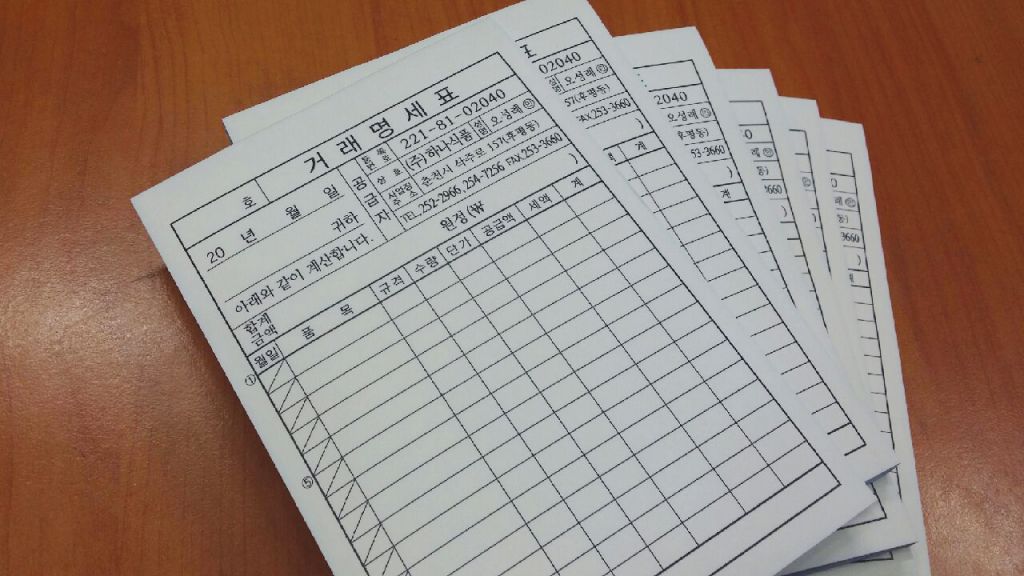 거래명세표
호
20 년 월 일
귀하
아래와 같이 계산합니다.
공급자
등록번호 221-81-02040
상호 (주)하나식품 성명 오성례 ㊞
사업장주소 춘천시 석주로 157(후평동)
TEL.252-2966, 254-7256 FAX.253-3660
합계금액 원정 (₩ )
월일 품목 규격 수량 단가 공급액 세액 계
①
⑤
표
02040
성명 오성례 ㊞
57(후평동)
FAX.253-3660
)
계
2040
오성례 ㊞
후평동)
53-3660
)
계
0
례 ㊞
동)
3660
)
㊞
)
3660
)